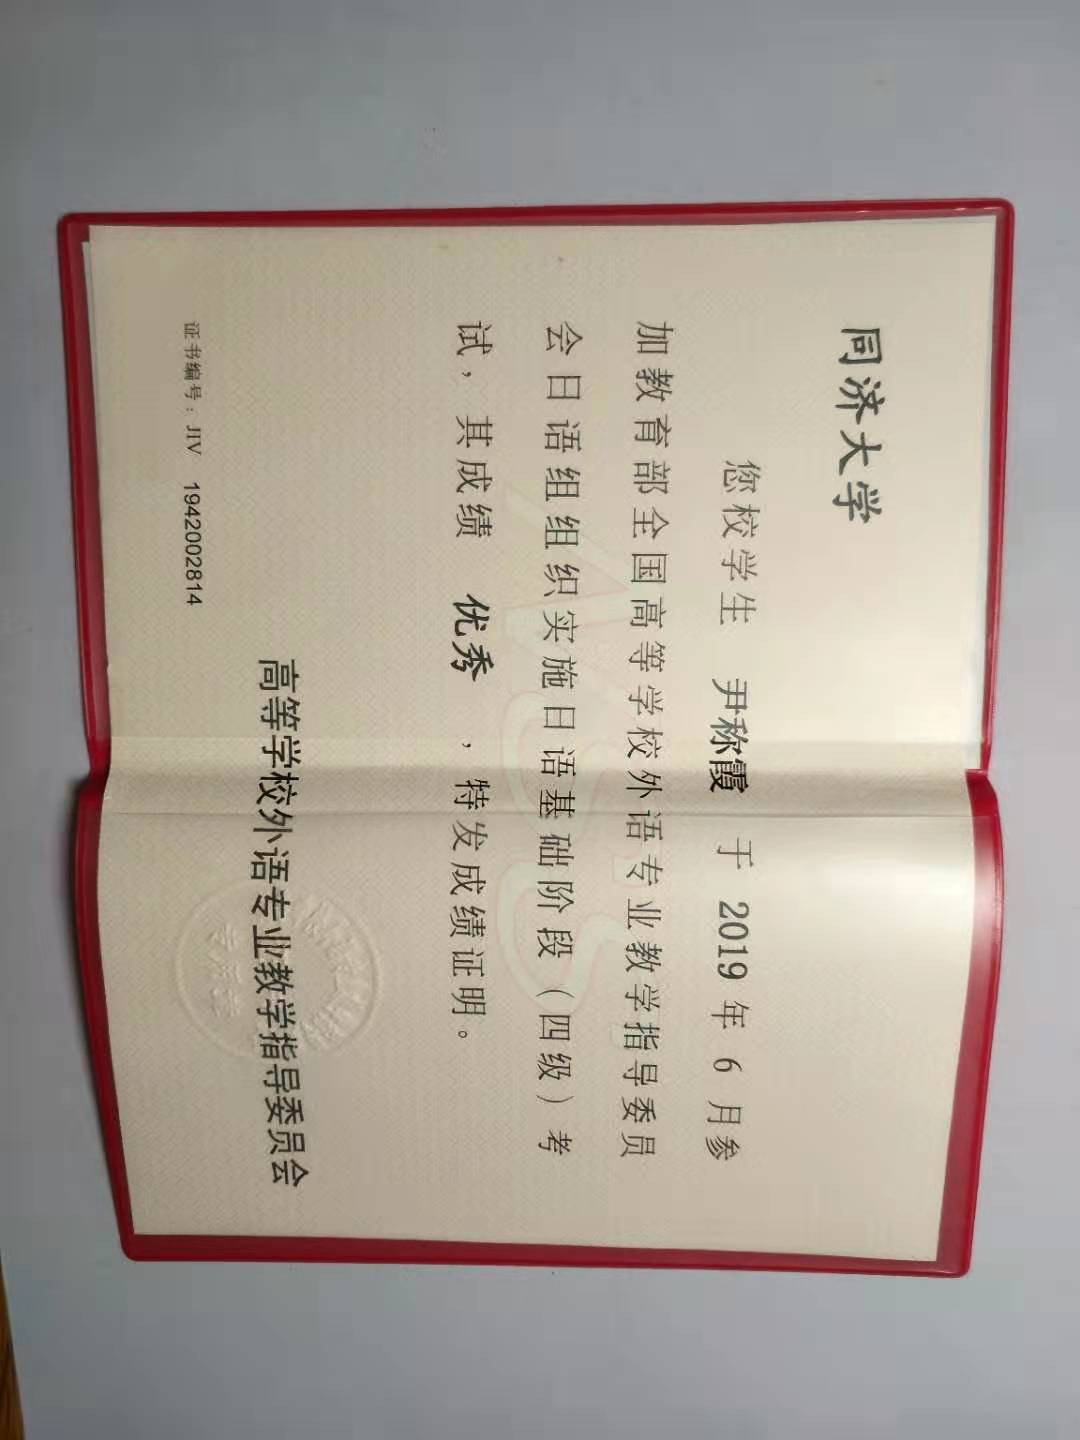 同济大学
您校学生 尹称霞 于 2019 年 6 月参
加教育部全国高等学校外语专业教学指导委员
会日语组组织实施日语基础阶段（四级）考
试，其成绩 优秀 ，特发成绩证明。
高等学校外语专业教学指导委员会
证书编号：JIV 1942002814